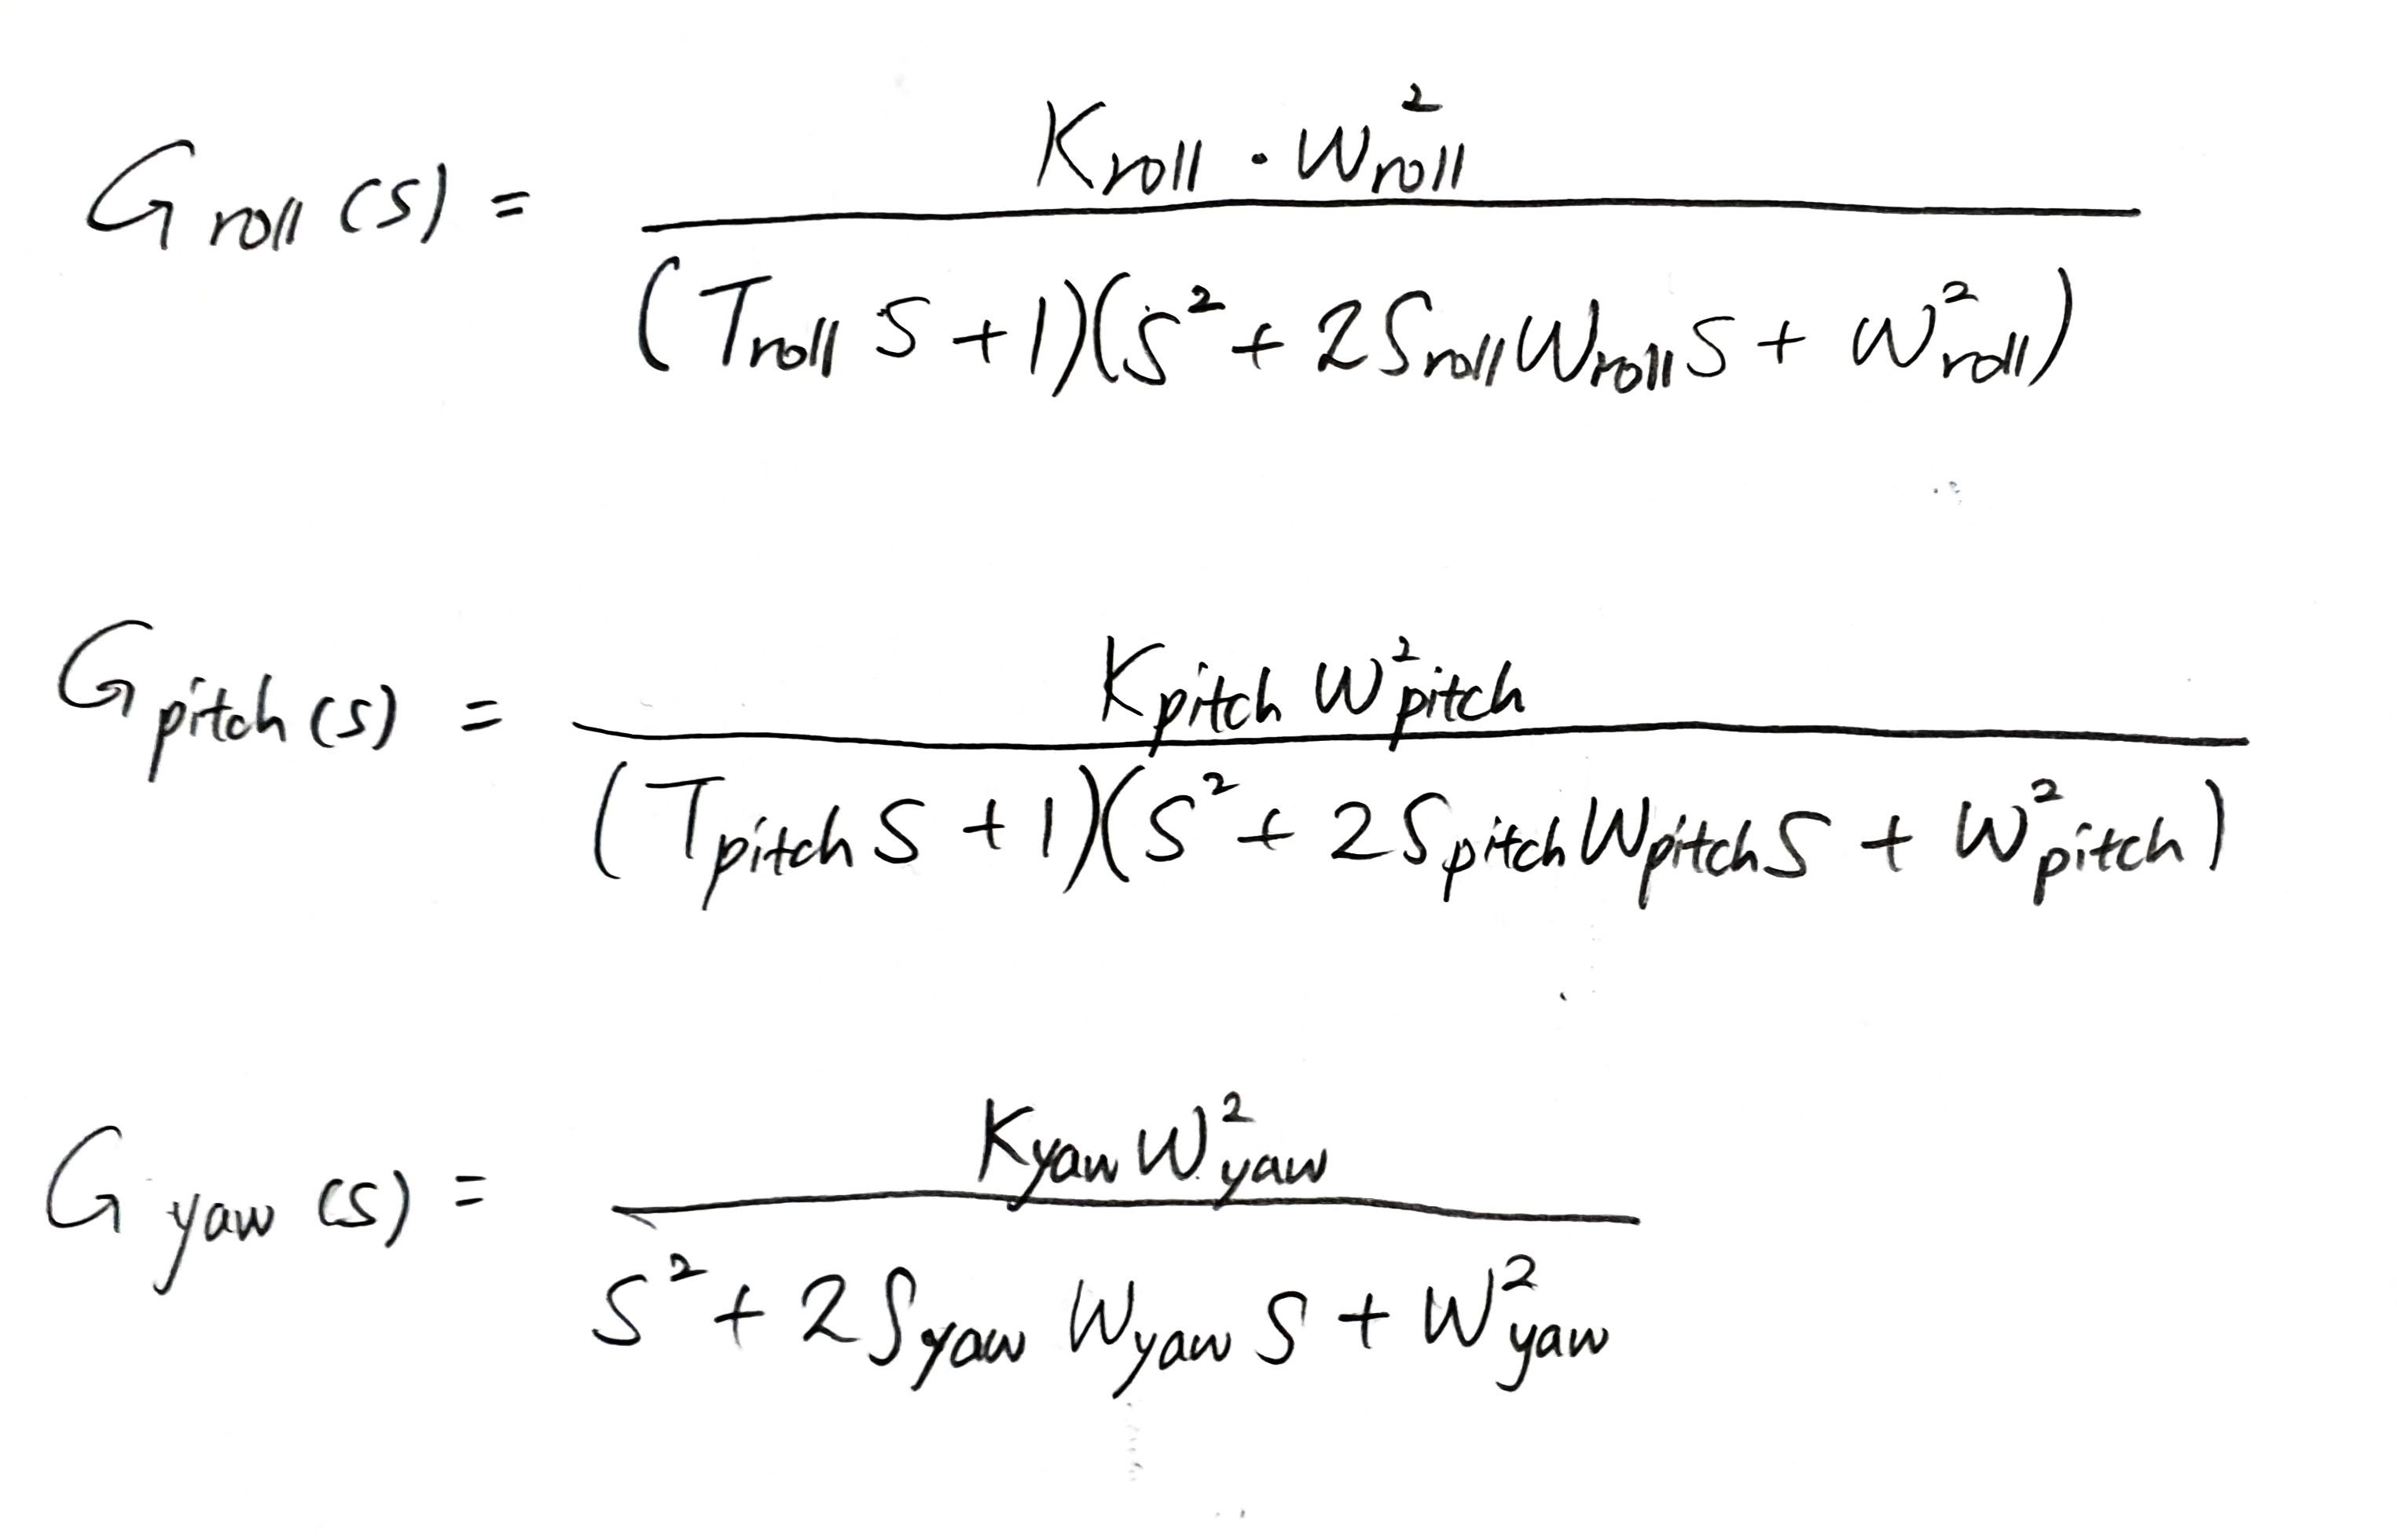 G_roll (s) = K_roll · W²_roll / (T_roll S + 1)(S² + 2 ζ_roll W_roll S + W²_roll)
G_pitch (s) = K_pitch W²_pitch / (T_pitch S + 1)(S² + 2 ζ_pitch W_pitch S + W²_pitch)
G_yaw (s) = K_yaw W²_yaw / S² + 2 ζ_yaw W_yaw S + W²_yaw